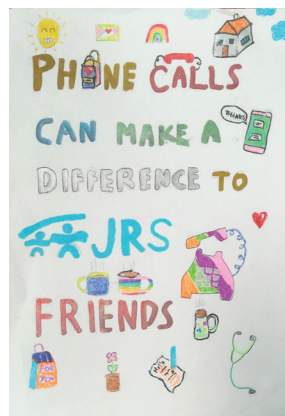 PHONE CALLS
CAN MAKE A
DIFFERENCE TO
JRS
FRIENDS
FOR
YOU